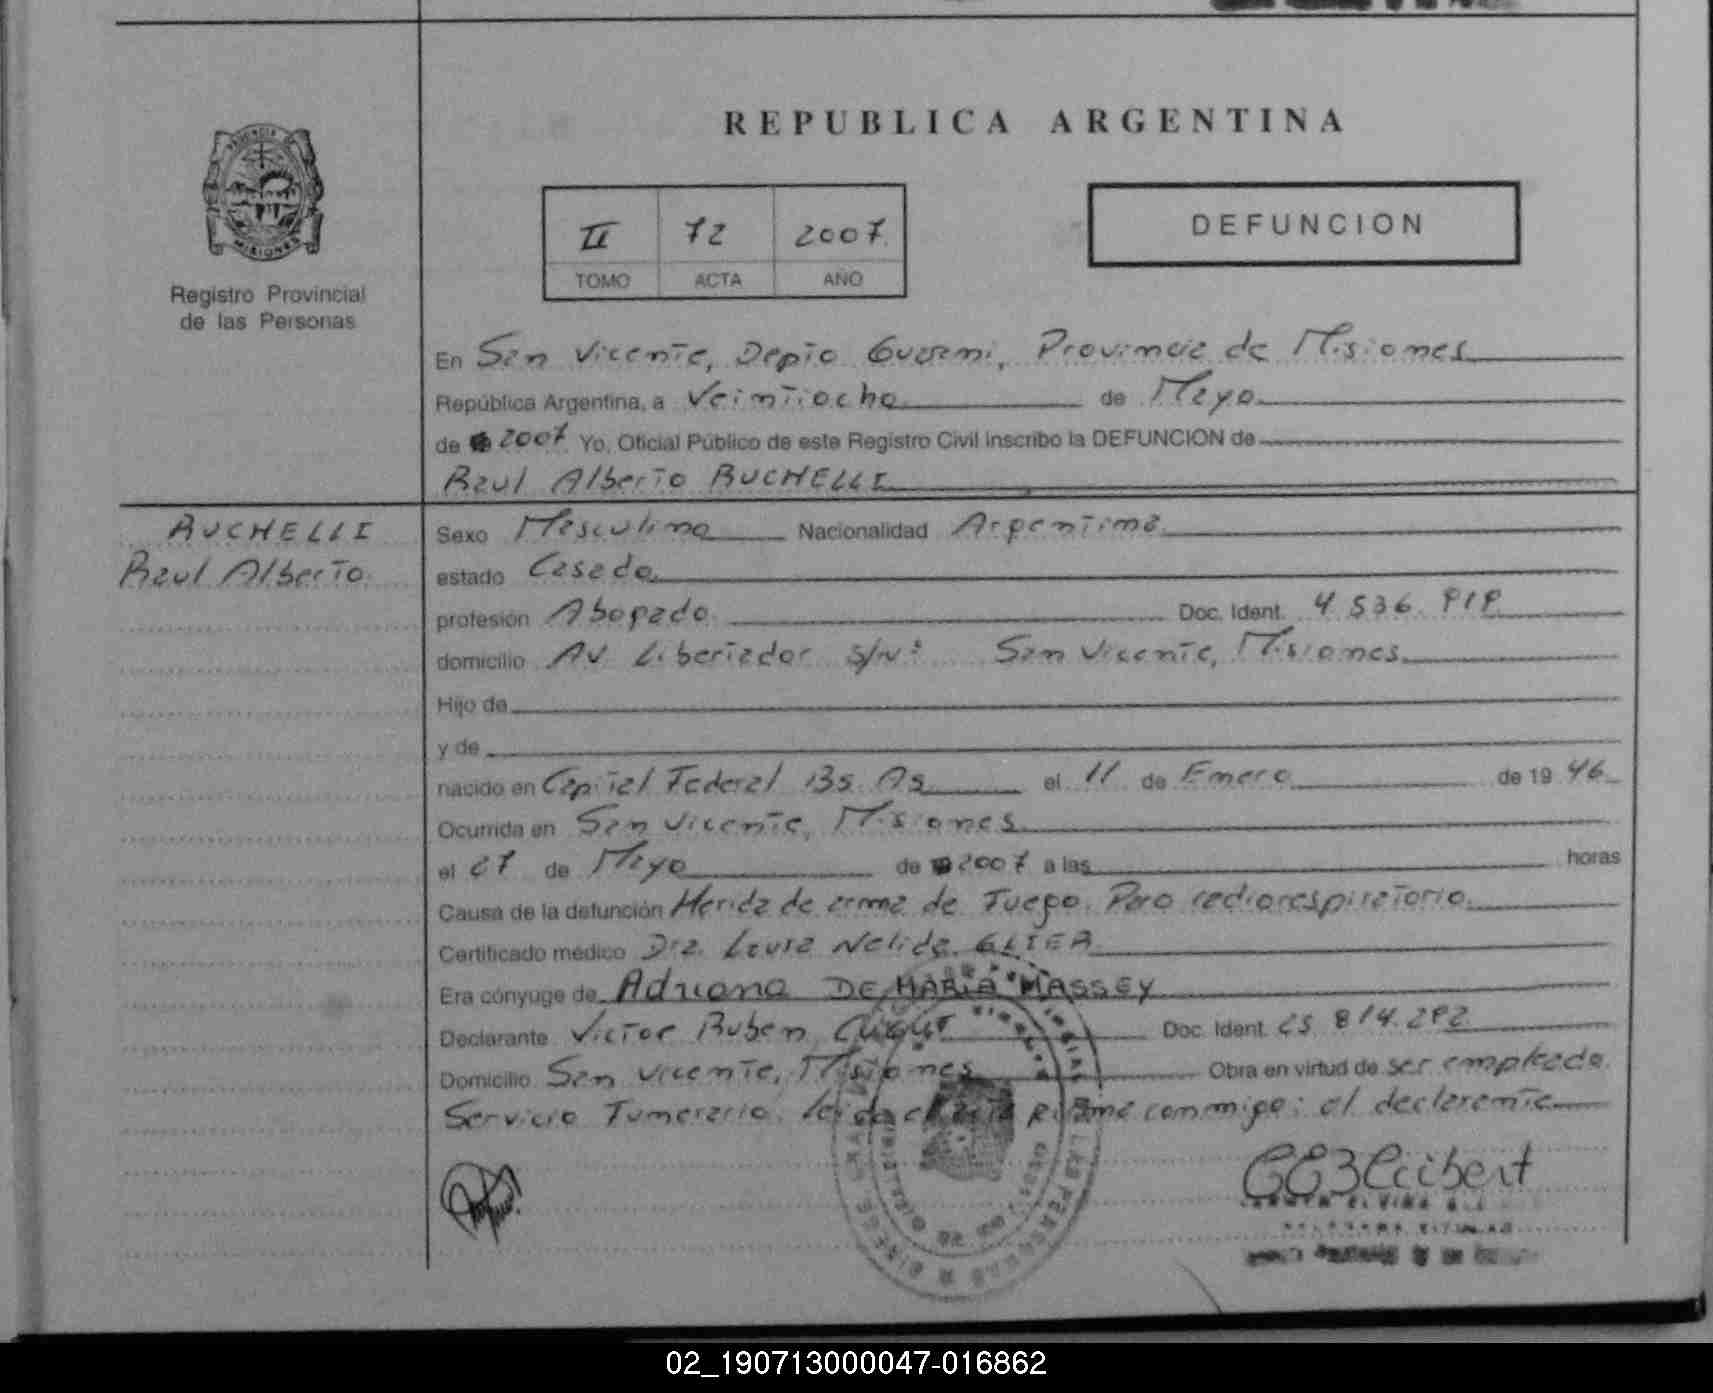 REPUBLICA ARGENTINA
PROVINCIA DE MISIONES
Registro Provincial
de las Personas
II 72 2007
TOMO ACTA AÑO
DEFUNCION
En San Vicente, Depto Guarani, Provincia de Misiones
República Argentina, a Veintiocho de Mayo
de 2007 Yo, Oficial Público de este Registro Civil inscribo la DEFUNCION de
Raul Alberto BUCHELLI
BUCHELLI
Raul Alberto
Sexo Masculino Nacionalidad Argentina
estado Casado
profesión Abogado Doc. Ident. 4.536.919
domicilio AV. Libertador S/Nº San Vicente, Misiones
Hijo de
y de
nacido en Capital Federal Bs. As el 11 de Enero de 19 46
Ocurrida en San Vicente, Misiones
el 27 de Mayo de 2007 a las horas
Causa de la defunción Herida de arma de Fuego. Paro cardiorespiratorio
Certificado médico Dra. Laura Nelida
Era cónyuge de Adriana DE MARIA MASSEY
Declarante Victor Ruben Doc. Ident. 25.814.292
Domicilio San Vicente, Misiones Obra en virtud de ser empleado
Servicio Funerario. Leida el acta Firma conmigo: el declarante
02_190713000047-016862